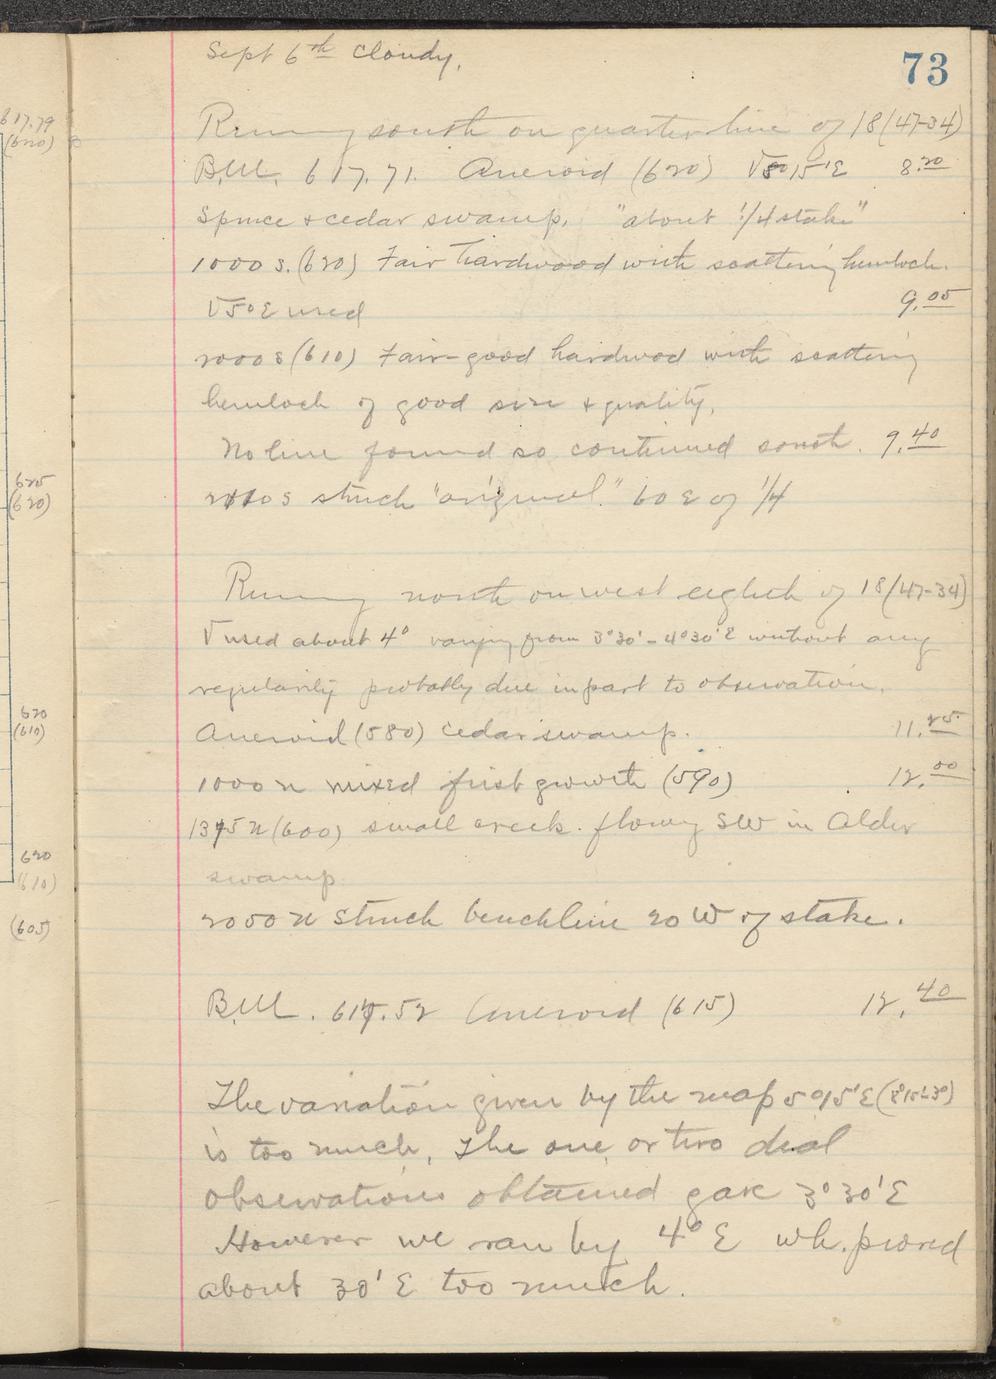 73
Sept 6th Cloudy.
Running south on quarter line of 18 (47-34)
B.M. 617.71. Aneroid (620) V5°15'E 8.20
Spruce & cedar swamp. "about 1/4 stake"
1000 S. (620) Fair hardwood with scattering hemlock.
V5°E used 9.05
2000 S (610) Fair-good hardwood with scattering
hemlock of good size & quality.
No line found so continued south. 9.40
S struck "original" 60 E of 1/4
Running north on west eighth of 18 (47-34)
V used about 4° varying from 3°30'-4°30'E without any
regularity probably due in part to observation.
Aneroid (580) cedar swamp. 11.25
1000 N mixed first growth (590) 12.00
1375 N (600) small creek flowing SW in Alder
swamp
2050 N Struck benchline 20 W of stake.
B.M. 617.52 Aneroid (615) 12.40
The variation given by the map 5°15'E
is too much. The one or two dial
observations obtained gave 3°30'E
However we ran by 4° E wh. proved
about 30' E too much.
617.79
(620)
625
(620)
620
(610)
620
(610)
(605)